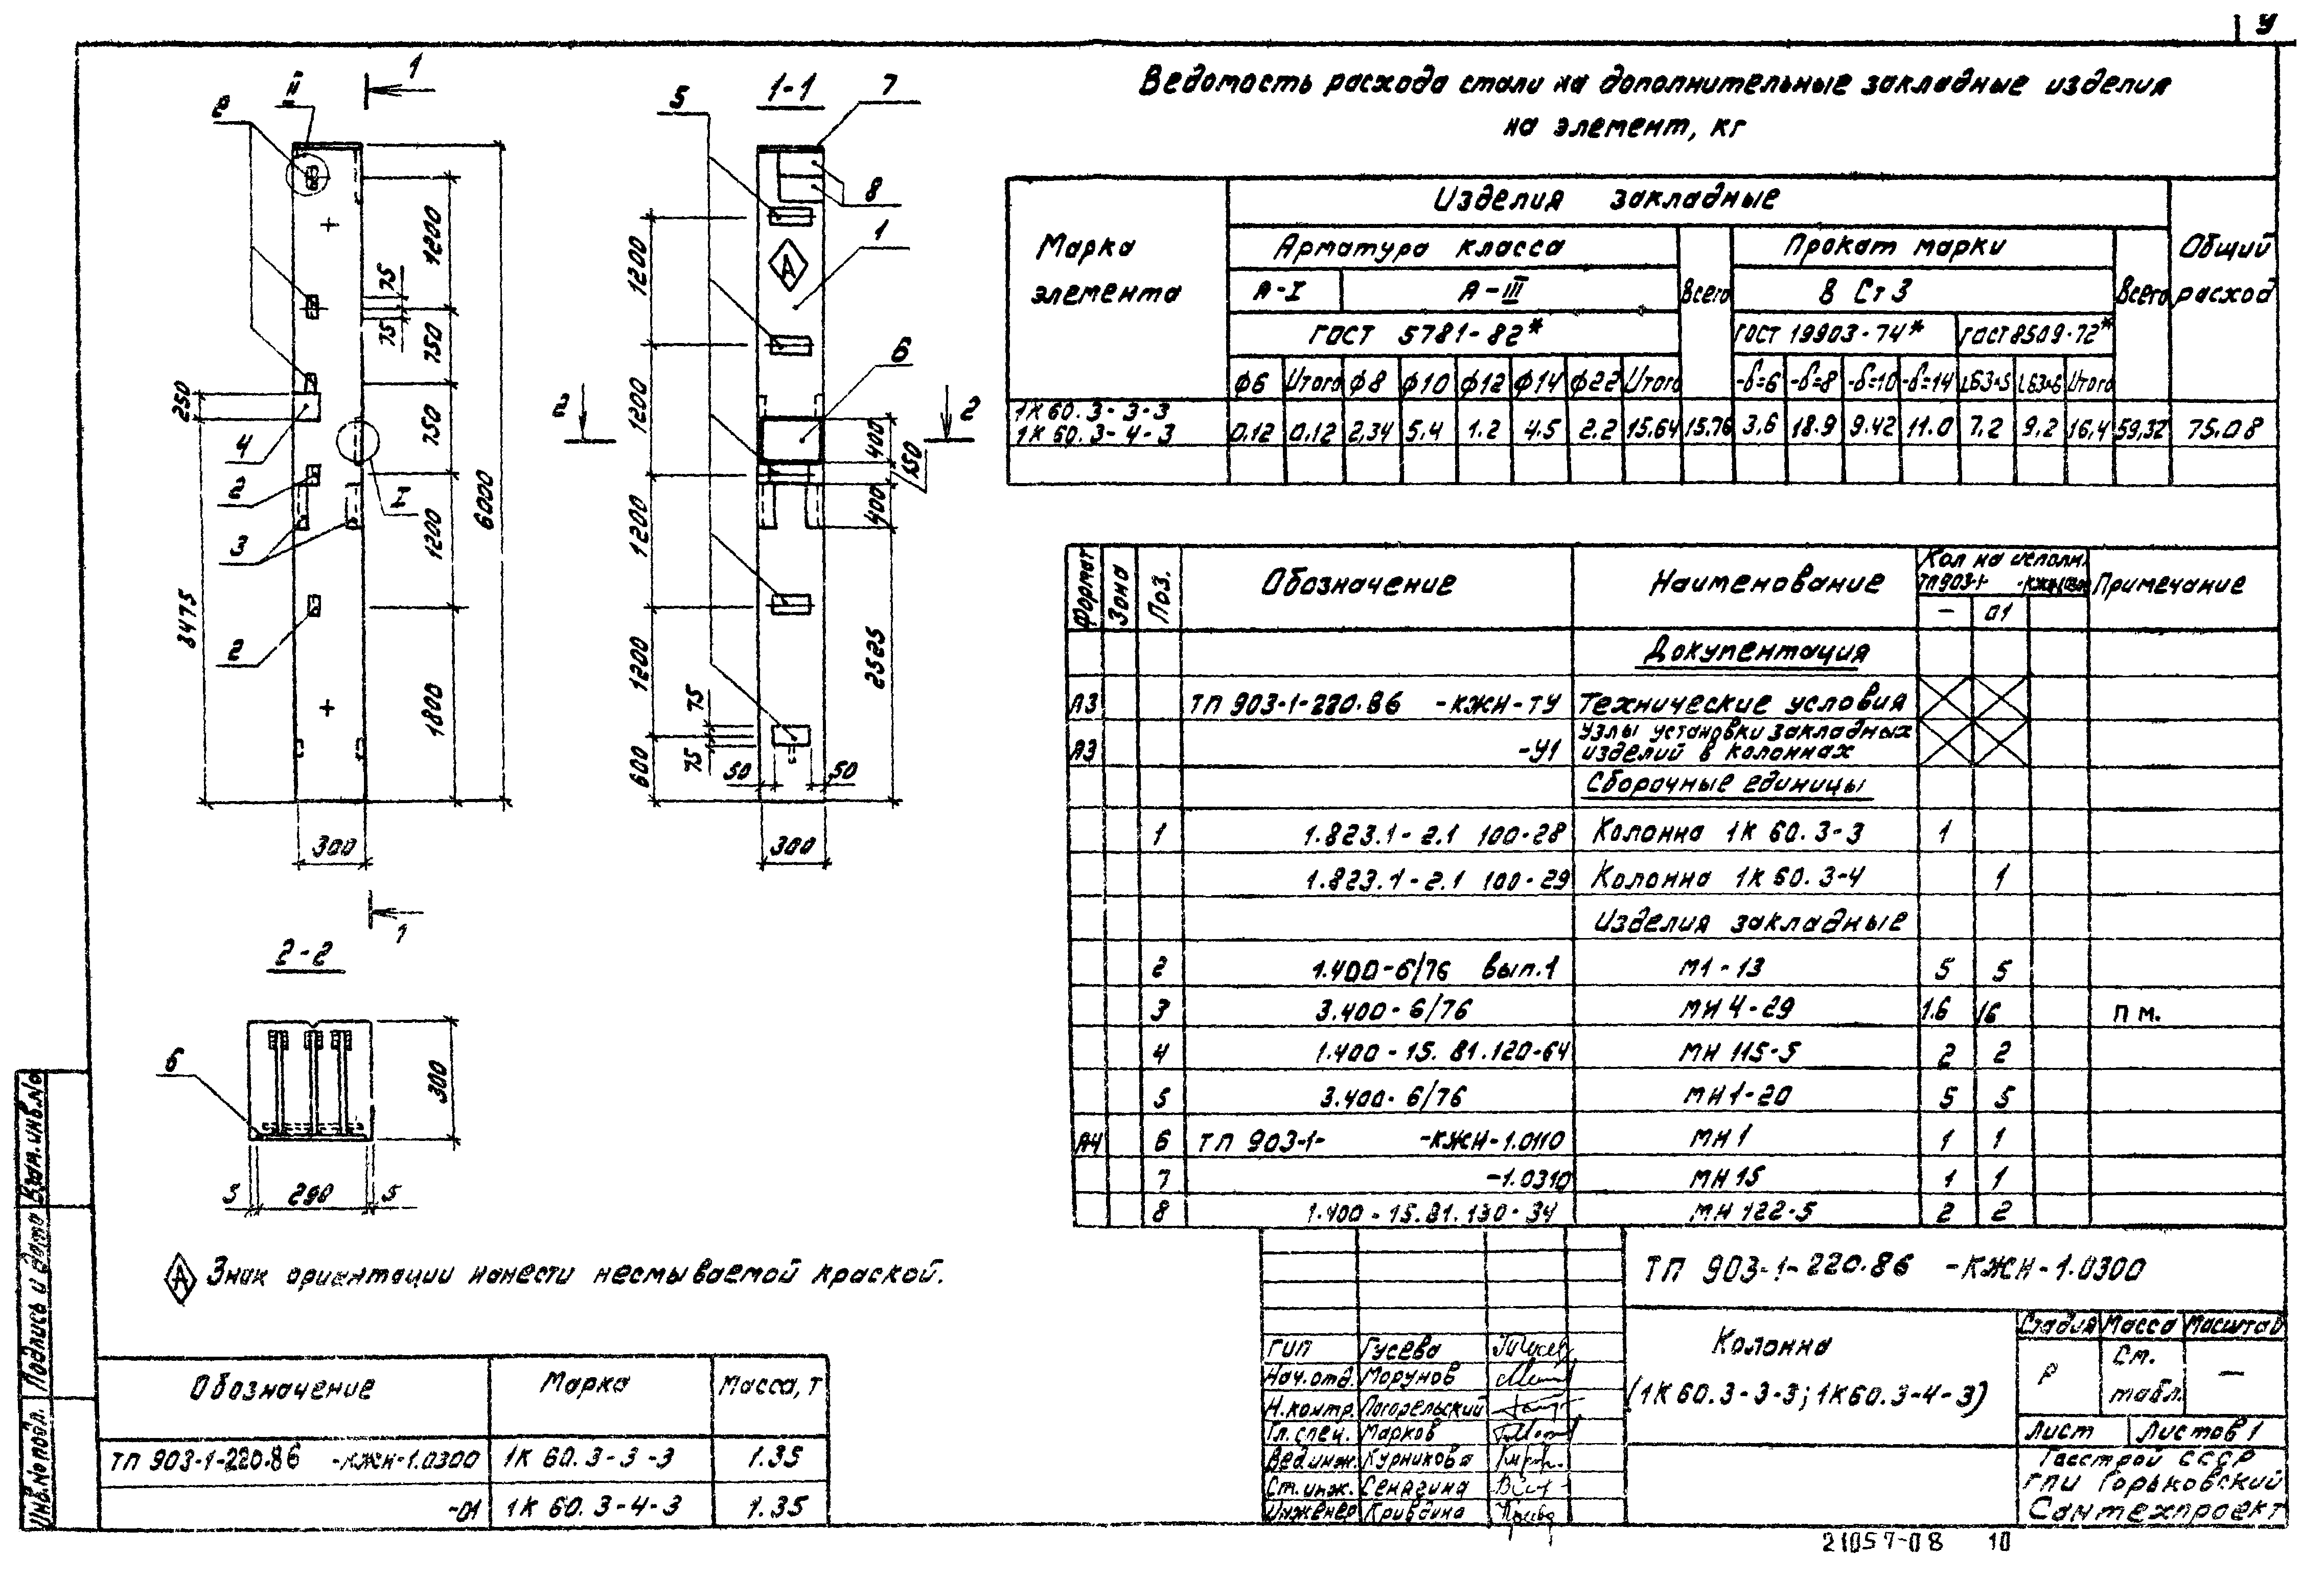 У
Ведомость расхода стали на дополнительные закладные изделия
на элемент, кг
Марка элемента
Изделия закладные
Общий расход
Арматура класса
Всего
Прокат марки
Всего
А-I
А-III
В Ст 3
ГОСТ 5781-82*
ГОСТ 19903-74*
ГОСТ 8509-72*
ф6 Итого ф8 ф10 ф12 ф14 ф22 Итого -δ=6 -δ=8 -δ=10 -δ=14 L63×5 L63×6 Итого
1К 60.3-3-3
1К 60.3-4-3 0,12 0,12 2,34 5.4 1.2 4.5 2.2 15.64 15.76 3,6 18.9 9.42 11.0 7.2 9.2 16,4 59,32 75.08
2 II 1
1200
75
75
750
250
750
4
2 I
1200
6000
3
3475
2
1800
300
1
1-1
5 7
8
1
1200
А
6
2 2
1200
400
150
400
1200
2525
1200
75
75
600
50 50
300
2-2
6
300
5 290 5
А Знак ориентации нанести несмываемой краской.
Формат Зона Поз. Обозначение Наименование Кол на исполн. Примечание
ТП 903-1-
- 01
Документация
А3 ТП 903-1-220.86 -КЖН-ТУ Технические условия
А3 -У1 Узлы установки закладных
изделий в колоннах
Сборочные единицы
1 1.823.1-2.1 100-28 Колонна 1К 60.3-3 1
1.823.1-2.1 100-29 Колонна 1К 60.3-4 1
Изделия закладные
2 1.400-6/76 вып.1 М1-13 5 5
3 3.400-6/76 МН 4-29 1.6 16 п м.
4 1.400-15.В1.120-64 МН 115-5 2 2
5 3.400-6/76 МН1-20 5 5
А4 6 ТП 903-1- -КЖН-1.0110 МН 1 1 1
7 -1.0310 МН 15 1 1
8 1.400-15.В1.130-34 МН 122-5 2 2
Обозначение Марка Масса, т
ТП 903-1-220.86 -КЖН-1.0300 1К 60.3-3-3 1.35
-01 1К 60.3-4-3 1.35
ТП 903-1-220.86 -КЖН-1.0300
Колонна
(1К 60.3-3-3; 1К60.3-4-3)
Стадия Масса Масштаб
Р См. табл. —
Лист Листов 1
Госстрой СССР
ГПИ Горьковский
Сантехпроект
ГИП Гусева
Нач.отд. Морунов
Н.контр. Погорельский
Гл.спец. Марков
Вед.инж. Курникова
Ст.инж. Сенягина
Инженер Кривдина
Взам.инв.№
Подпись и дата
Инв.№ подл.
21057-08 10